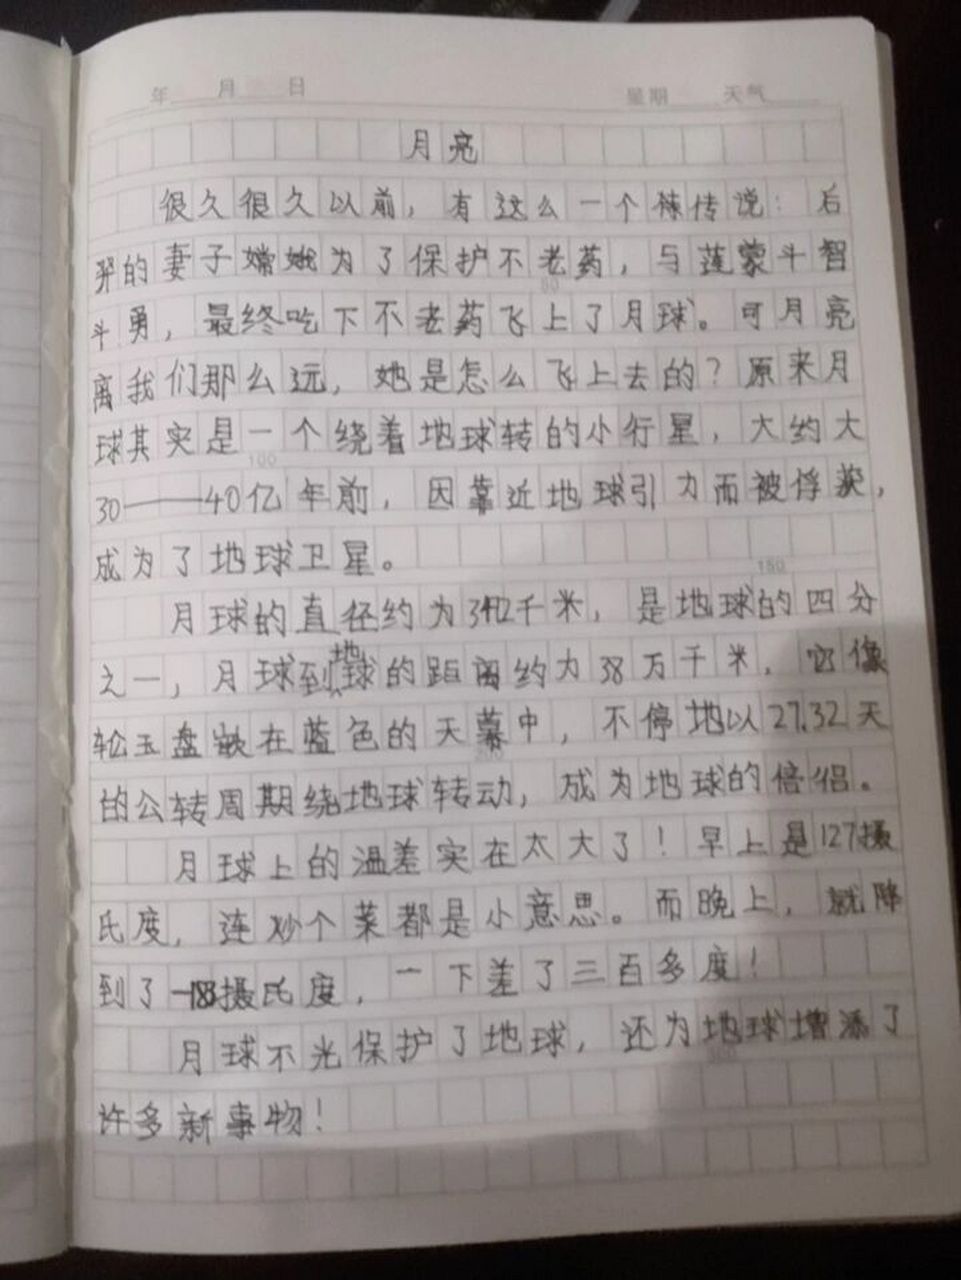 年 月 日 星期 天气
月亮
很久很久以前，有这么一个传说：后
羿的妻子嫦娥为了保护不老药，与蓬蒙斗智
斗勇，最终吃下不老药飞上了月球。可月亮
离我们那么远，她是怎么飞上去的？原来月
球其实是一个绕着地球转的小行星，大约大
30——40亿年前，因靠近地球引力而被俘获，
成为了地球卫星。
月球的直径约为千米，是地球的四分
之一，月球到地球的距离约为38万千米，它像
轮玉盘嵌在蓝色的天幕中，不停地以27.32天
的公转周期绕地球转动，成为地球的倍侣。
月球上的温差实在太大了！早上是127摄
氏度，连炒个菜都是小意思。而晚上，就降
到了摄氏度，一下差了三百多度！
月球不光保护了地球，还为地球增添了
许多新事物！
50
100
150
200
300